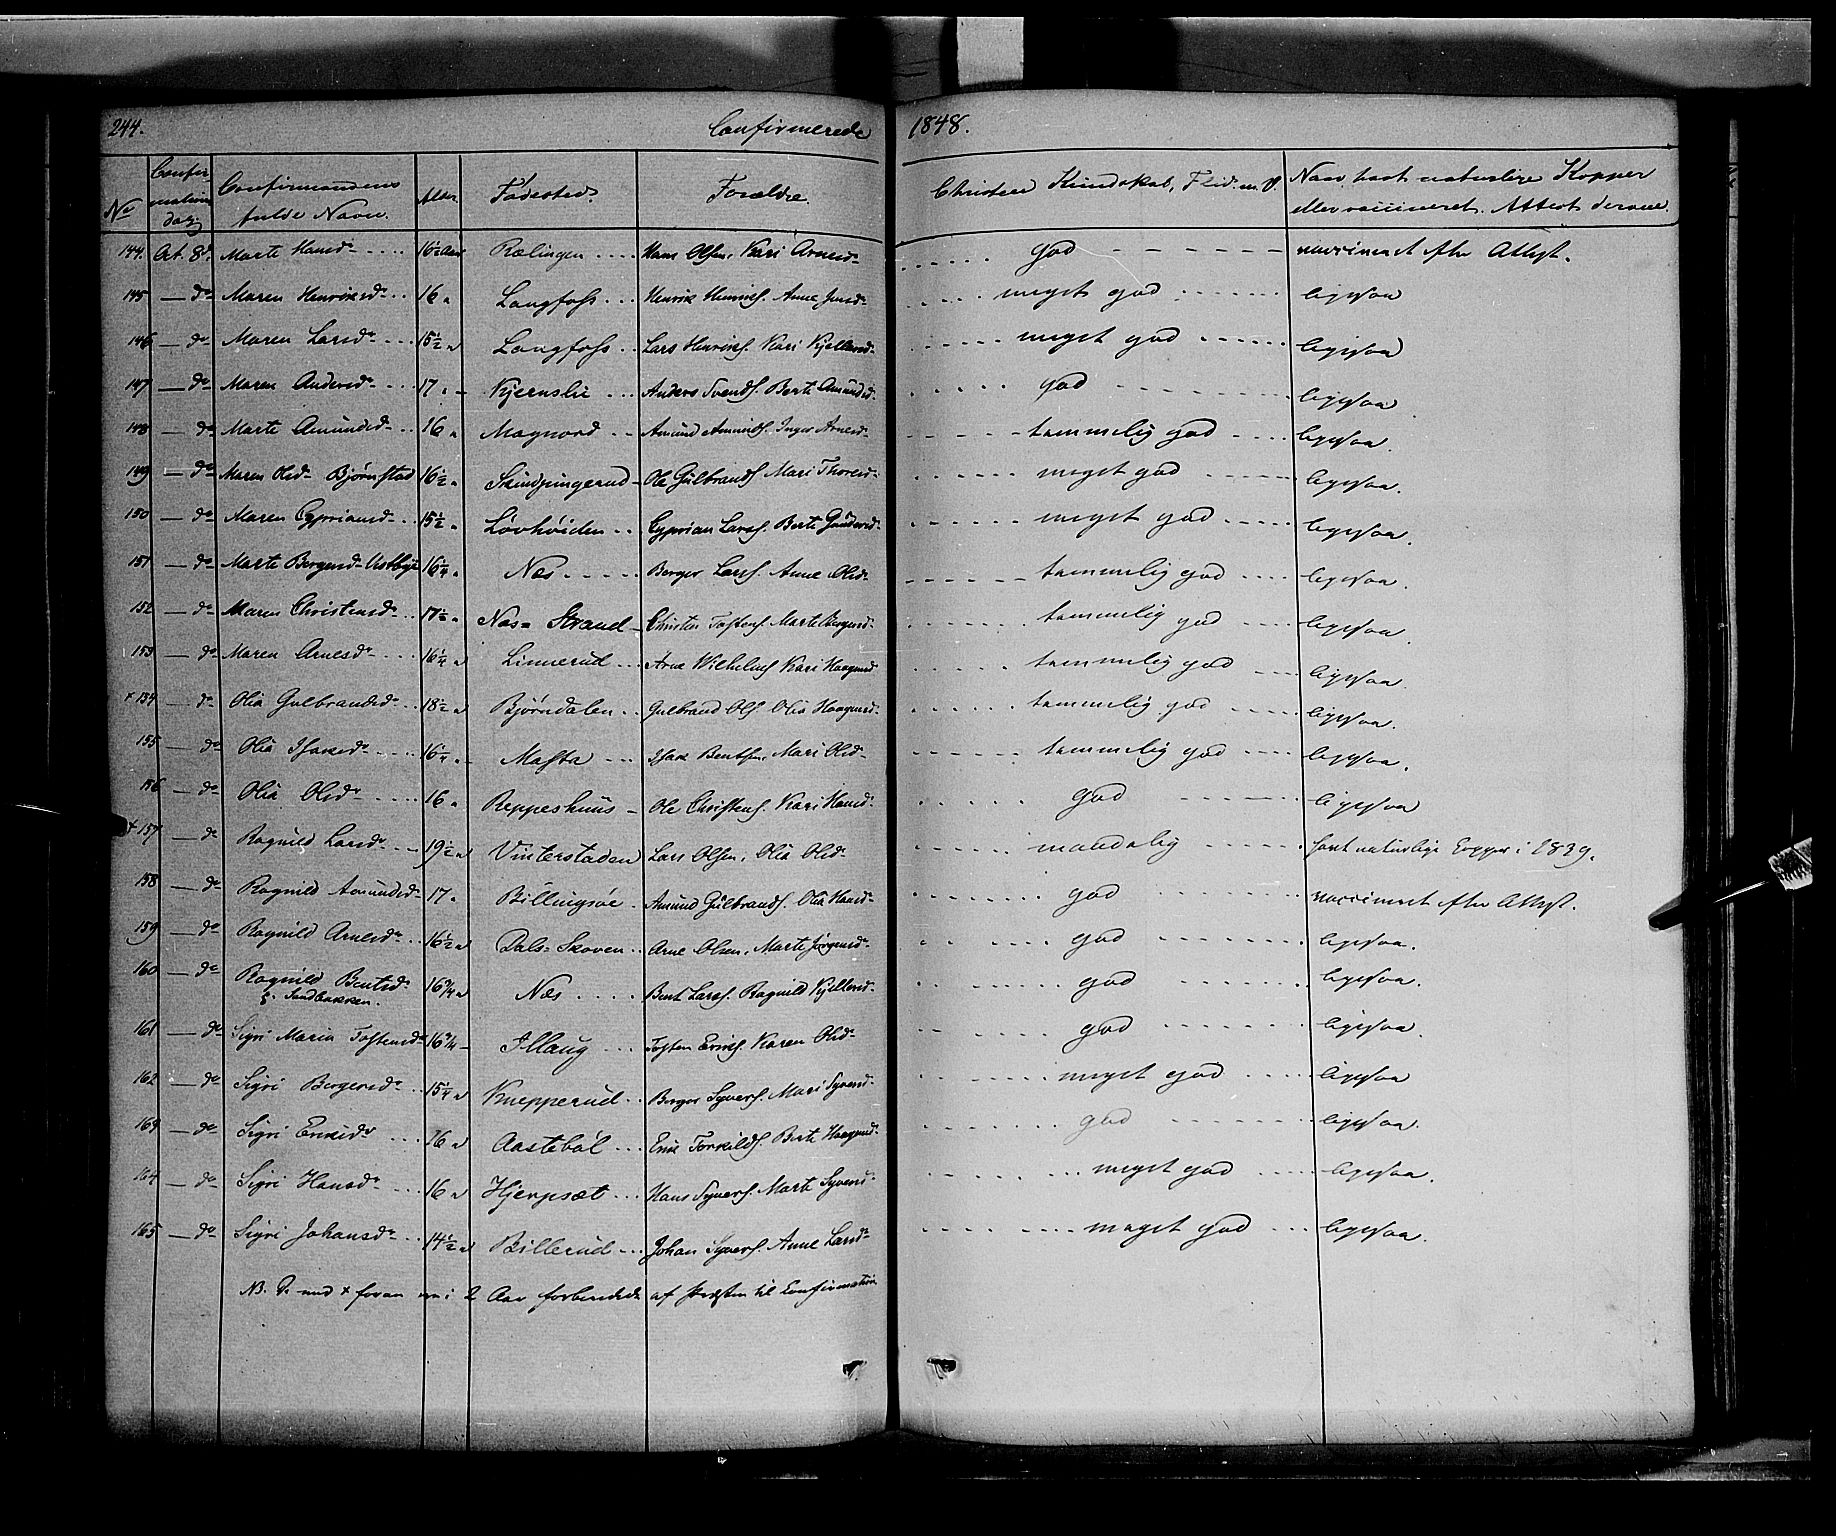 244. Confirmerede 1848.
No Confirmations dag Confirmandens fulde Navn. Alder Fødested. Forældre. Christend Kundskab, Flid. m. V. Naar havt naturlige Kopper eller vaccineret. Attest derom.
144. Oct. 8d. Marte Hansdr 16½ Aar Rælingen Hans Olsen, Kari Arnesdr god vaccineret efter Attest.
145 — do Maren Henriksdr 16 " Langfoss Henrik Henriks. Anne Jensdr meget god ligesaa
146 — do Maren Larsdr 15½ " Langfoss Lars Henriks. Kari Kjelleredr meget god ligesaa
147 — do Maren Andersdr 17 " Kjernslie Anders Svends. Berte Amundsdr god ligesaa
148 — do Marte Amundsdr 16 " Magnord Amund Amunds. Inger Arnesdr temmelig god ligesaa.
149 — do Maren Olsdr Bjørnstad 16½ " Skindpungerud Ole Gulbrands. Mari Thoresdr meget god ligesaa.
150 — do Maren Cypriansdr 15½ " Løvhøiden Cyprian Lars. Berte Gundersdr meget god ligesaa.
151 — do Marte Bergersdr Vestbye 16¼ " Næs Berger Lars. Anne Olsdr temmelig god ligesaa.
152 — do Maren Christensdr 17½ " Næs= Strand Christen Tostens. Marte Bergersdr temmelig god ligesaa.
153 — do Maren Arnesdr 16¼ " Linnerud Arne Wilhelms. Kari Haagensdr temmelig god ligesaa.
+ 154 — do Olia Gulbrandsdr 18½ " Bjørndalen Gulbrand Ols. Olia Haagensdr temmelig god ligesaa.
155 — do Olia Isaksdr 16¼ " Masta Isak Bentsen, Mari Olsdr temmelig god ligesaa.
156 — do Olia Olsdr 16 " Reppeshuus Ole Christens. Kari Hansdr god ligesaa
+ 157 — do Ragnild Larsdr 19½ " Vinterstaden Lars Olsen, Olia Olsdr maadelig havt naturlige Kopper i 1839.
158 — do Ragnild Amundsdr 17 " Billingsøe Amund Gulbrands. Olia Hansdr god vaccineret efter Attest.
159 — do Ragnild Arnesdr 16½ " Dals= Skoven Arne Olsen, Marte Jørgensdr god ligesaa.
160 — do Ragnild Bentsdr Sandbakken. 16¾ " Næs Bent Lars. Ragnild Kjelleredr god ligesaa.
161 — do Sigri Maria Tostensdr 16¾ Illaug Tosten Eriks. Karen Olsdr god ligesaa
162 — do Sigri Bergersdr 15¼ " Knepperud Berger Syvers. Mari Syversdr meget god ligesaa
163 — do Sigri Eriksdr 16 " Aastebøl Erik Torkilds. Berte Haagensdr god ligesaa.
164 — do Sigri Hansdr 16 " Hjerpsæt Hans Syvers. Marte Syversdr meget god ligesaa.
165 — do Sigri Johansdr 14½ " Billerud Johan Syvers. Anne Larsdr meget god ligesaa.
NB. De med + foran ere i 2 Aar forberedede af Præsten til Confirmation